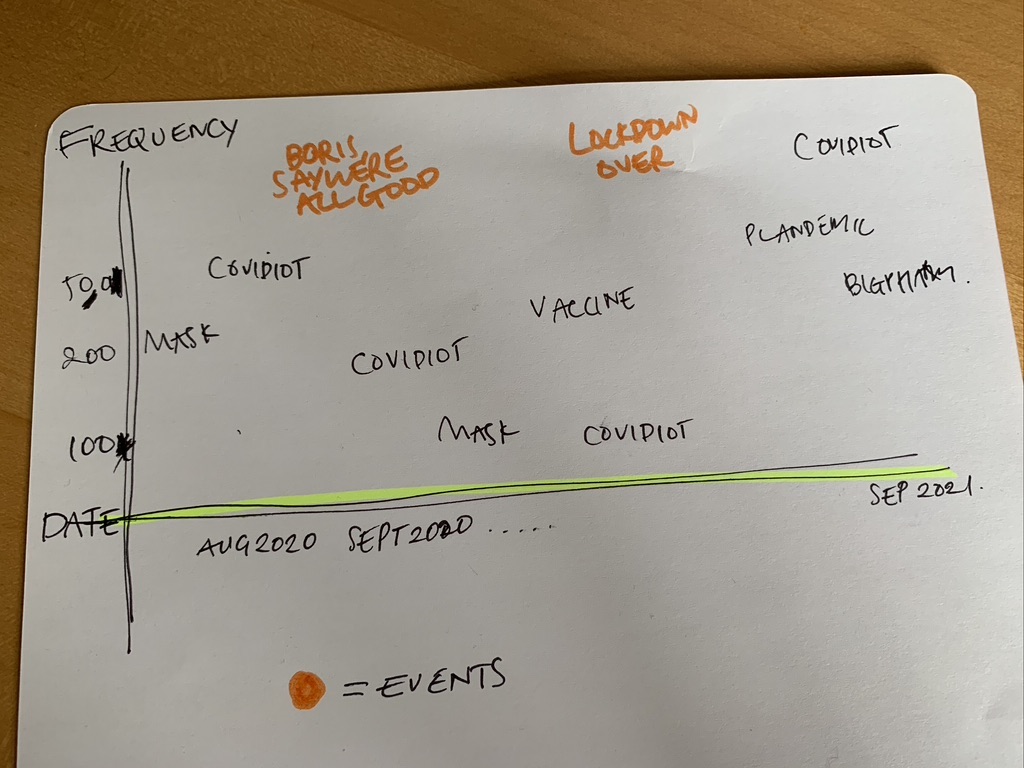 FREQUENCY
BORIS
SAY WERE
ALL GOOD
LOCKDOWN
OVER
COVIDIOT
PLANDEMIC
COVIDIOT
VACCINE
200
MASK
COVIDIOT
100
MASK
COVIDIOT
DATE
AUG 2020
SEPT 2020 ......
SEP 2021.
= EVENTS